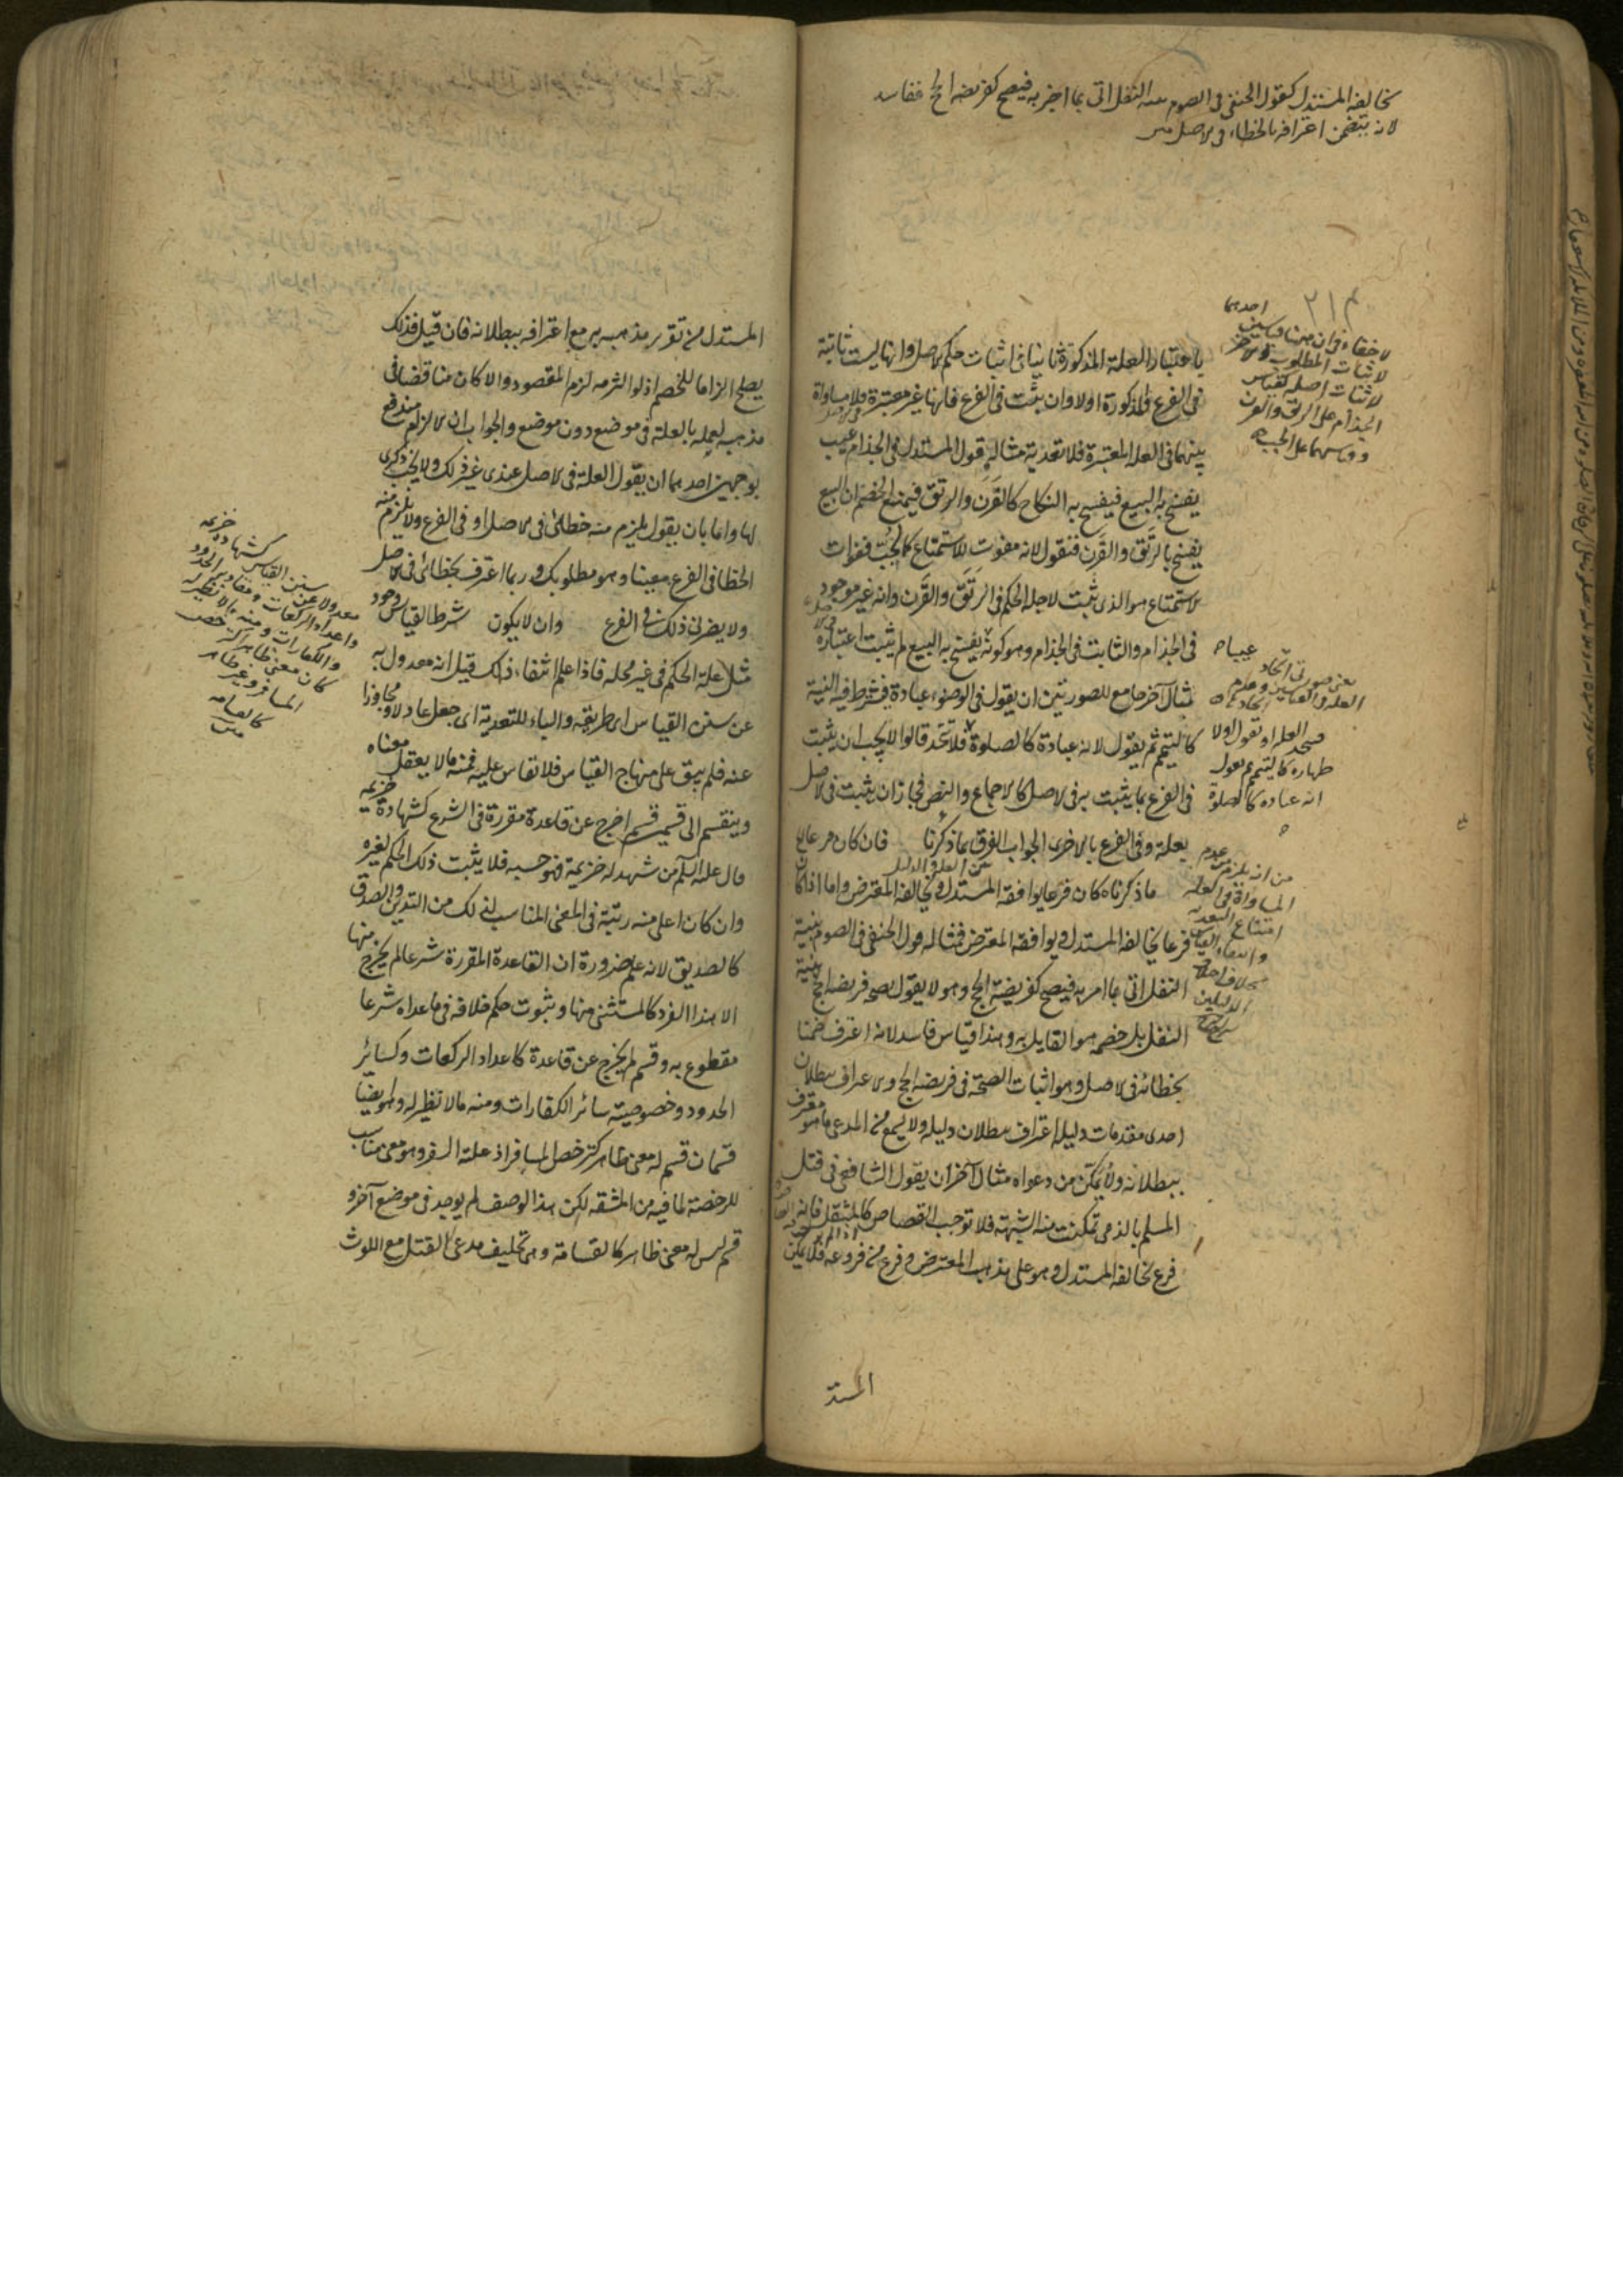 يخالفه المستدل كقول الحنفى فى الصوم بنية النفل اتى بما اخبر به فيصح كفريضة الحج ففاسد
لانه يتضمن اعترافه بالخطاء فى الاصل
٢١٤
احديهما
لاخفاء فى ان هنا قياسين
لاثبات المطلوب والاخر
لاثبات اصله كقياس
الجذام على الرتق والقرن
وقياسهما على الجب
باعتبار العلة المذكورة ثانيا فى اثبات حكم الاصل وانها ليست ثابتة
فى الفرع والمذكورة اولا وان يثبت فى الفرع فانها غير معتبرة فلا مساواة
بينهما فى العلة المعتبرة فلا تعدية مثاله قول المستدل فى الجذام عيب
يفسخ به البيع فيفسخ به النكاح كالقرن والرتق فيمنع الخصم ان البيع
يفسخ بالرتق والقرن فنقول لانه مفوت للاستمتاع كالجب ففوات
الاستمتاع هو الذى يثبت لاجله الحكم فى الرتق والقرن وانه غير موجود
فى الجذام والثابت فى الجذام وهو كونه يفسخ به البيع لم يثبت اعتباره
مثال آخر جامع للصورتين ان يقول فى الوضوء عبادة فيشترط فيه النية
كالتيمم ثم يقول لانه عبادة كالصلوة فلا تتحد قالوا لا يجب ان يثبت
فى الفرع بما يثبت به فى الاصل كالاجماع والنص فجاز ان يثبت فى الاصل
بعلة وفى الفرع بالاخرى الجواب الفرق بما ذكرنا فان كان فرعا
ما ذكرناه كان فرعا يوافقه المستدل ويخالفه المعترض واما اذا كان
فرعا يخالفه المستدل ويوافقه المعترض فمثاله قول الحنفى فى الصوم بنية
النفل اتى بما امر به فيصح كفريضة الحج وهو لا يقول بصحة فريضة الحج بنية
النفل بل خصمه هو القايل به وهذا قياس فاسد لانه اعترف ضمنا
بخطائه فى الاصل وهو اثبات الصحة فى فريضة الحج والاعتراف ببطلان
احدى مقدمات دليله اعتراف ببطلان دليله ولا يسمع من المدعى ما هو معترف
ببطلانه ولا يمكن من دعواه مثال آخر ان يقول الشافعى فى قتل
المسلم بالذمى تمكنت منه الشبهة فلا توجب القصاص كالمثقل فانه
فرع يخالفه المستدل وهو على مذهب المعترض وفرع من فروعه فلا يمكن
المستد
عيبا
يعنى صورتى اتحاد
العلة فى القياسين وعدم اتحادهما
فيتحد العلة او تقول اولا
طهارة كالتيمم ثم يقول
انه عبادة كالصلوة
من انه يلزم من عدم
المساواة فى العلة
امتناع التعدية
وانتفاء القياس
بخلاف احد
الدليلين
المستدل من تقرير مذهبه به مع اعترافه ببطلانه فان قيل فذلك
يصلح الزاما للخصم اذ لو التزمه لزم المقصود والا كان مناقضا فى
مذهبه لعمله بالعلة فى موضع دون موضع والجواب ان الالزام مندفع
بوجهين احدهما ان يقول العلة فى الاصل عندى غير ذلك ولا يجب ذكرى
لها واما بان يقول يلزم منه خطائى فى الاصل او فى الفرع ولا يلزم منه
الخطا فى الفرع معينا وهو مطلوبك وربما اعترف بخطائى فى الاصل
ولا يضرنى ذلك فى الفرع وان لا يكون شرط القياس وجود
مثل علة الحكم فى غير محله فاذا علم انتفاء ذلك قيل انه معدول به
عن سنن القياس اى طريقه والباء للتعدية اى جعل عادلا ومجاوزا
عنه فلم يبق على منهاج القياس فلا تقاس عليه فمنه ما لا يعقل معناه
وينقسم الى قسمين قسم اخرج عن قاعدة مقررة فى الشرع كشهادة خزيمة
قال عليه السلم من شهد له خزيمة فهو حسبه فلا يثبت ذلك الحكم لغيره
وان كان اعلى منه رتبة فى المعنى المناسب لذلك من التدين والصدق
كالصديق لانه علم ضرورة ان القاعدة المقررة شرعا لم يخرج منها
الا هذا الفرد كالمستثنى منها وثبوت حكم خلافه فى ما عداه شرعا
مقطوع به وقسم لم يخرج عن قاعدة كاعداد الركعات وكسائر
الحدود وخصوصية سائر الكفارات ومنه ما لا نظير له وهو ايضا
قسمان قسم له معنى ظاهر كترخص المسافر اذ علته السفر وهو معنى مناسب
للرخصة لما فيه من المشقة لكن هذا الوصف لم يوجد فى موضع آخر و
قسم ليس له معنى ظاهر كالقسامة وهى تحليف مدعى القتل مع اللوث
معدولا عن سنن القياس كشهادة خزيمة
واعداد الركعات ومقادير الحدود
والكفارات ومنه ما لا نظير له
كان معنى ظاهر كرخص
المسافر وغير ظاهر
كالقسامة